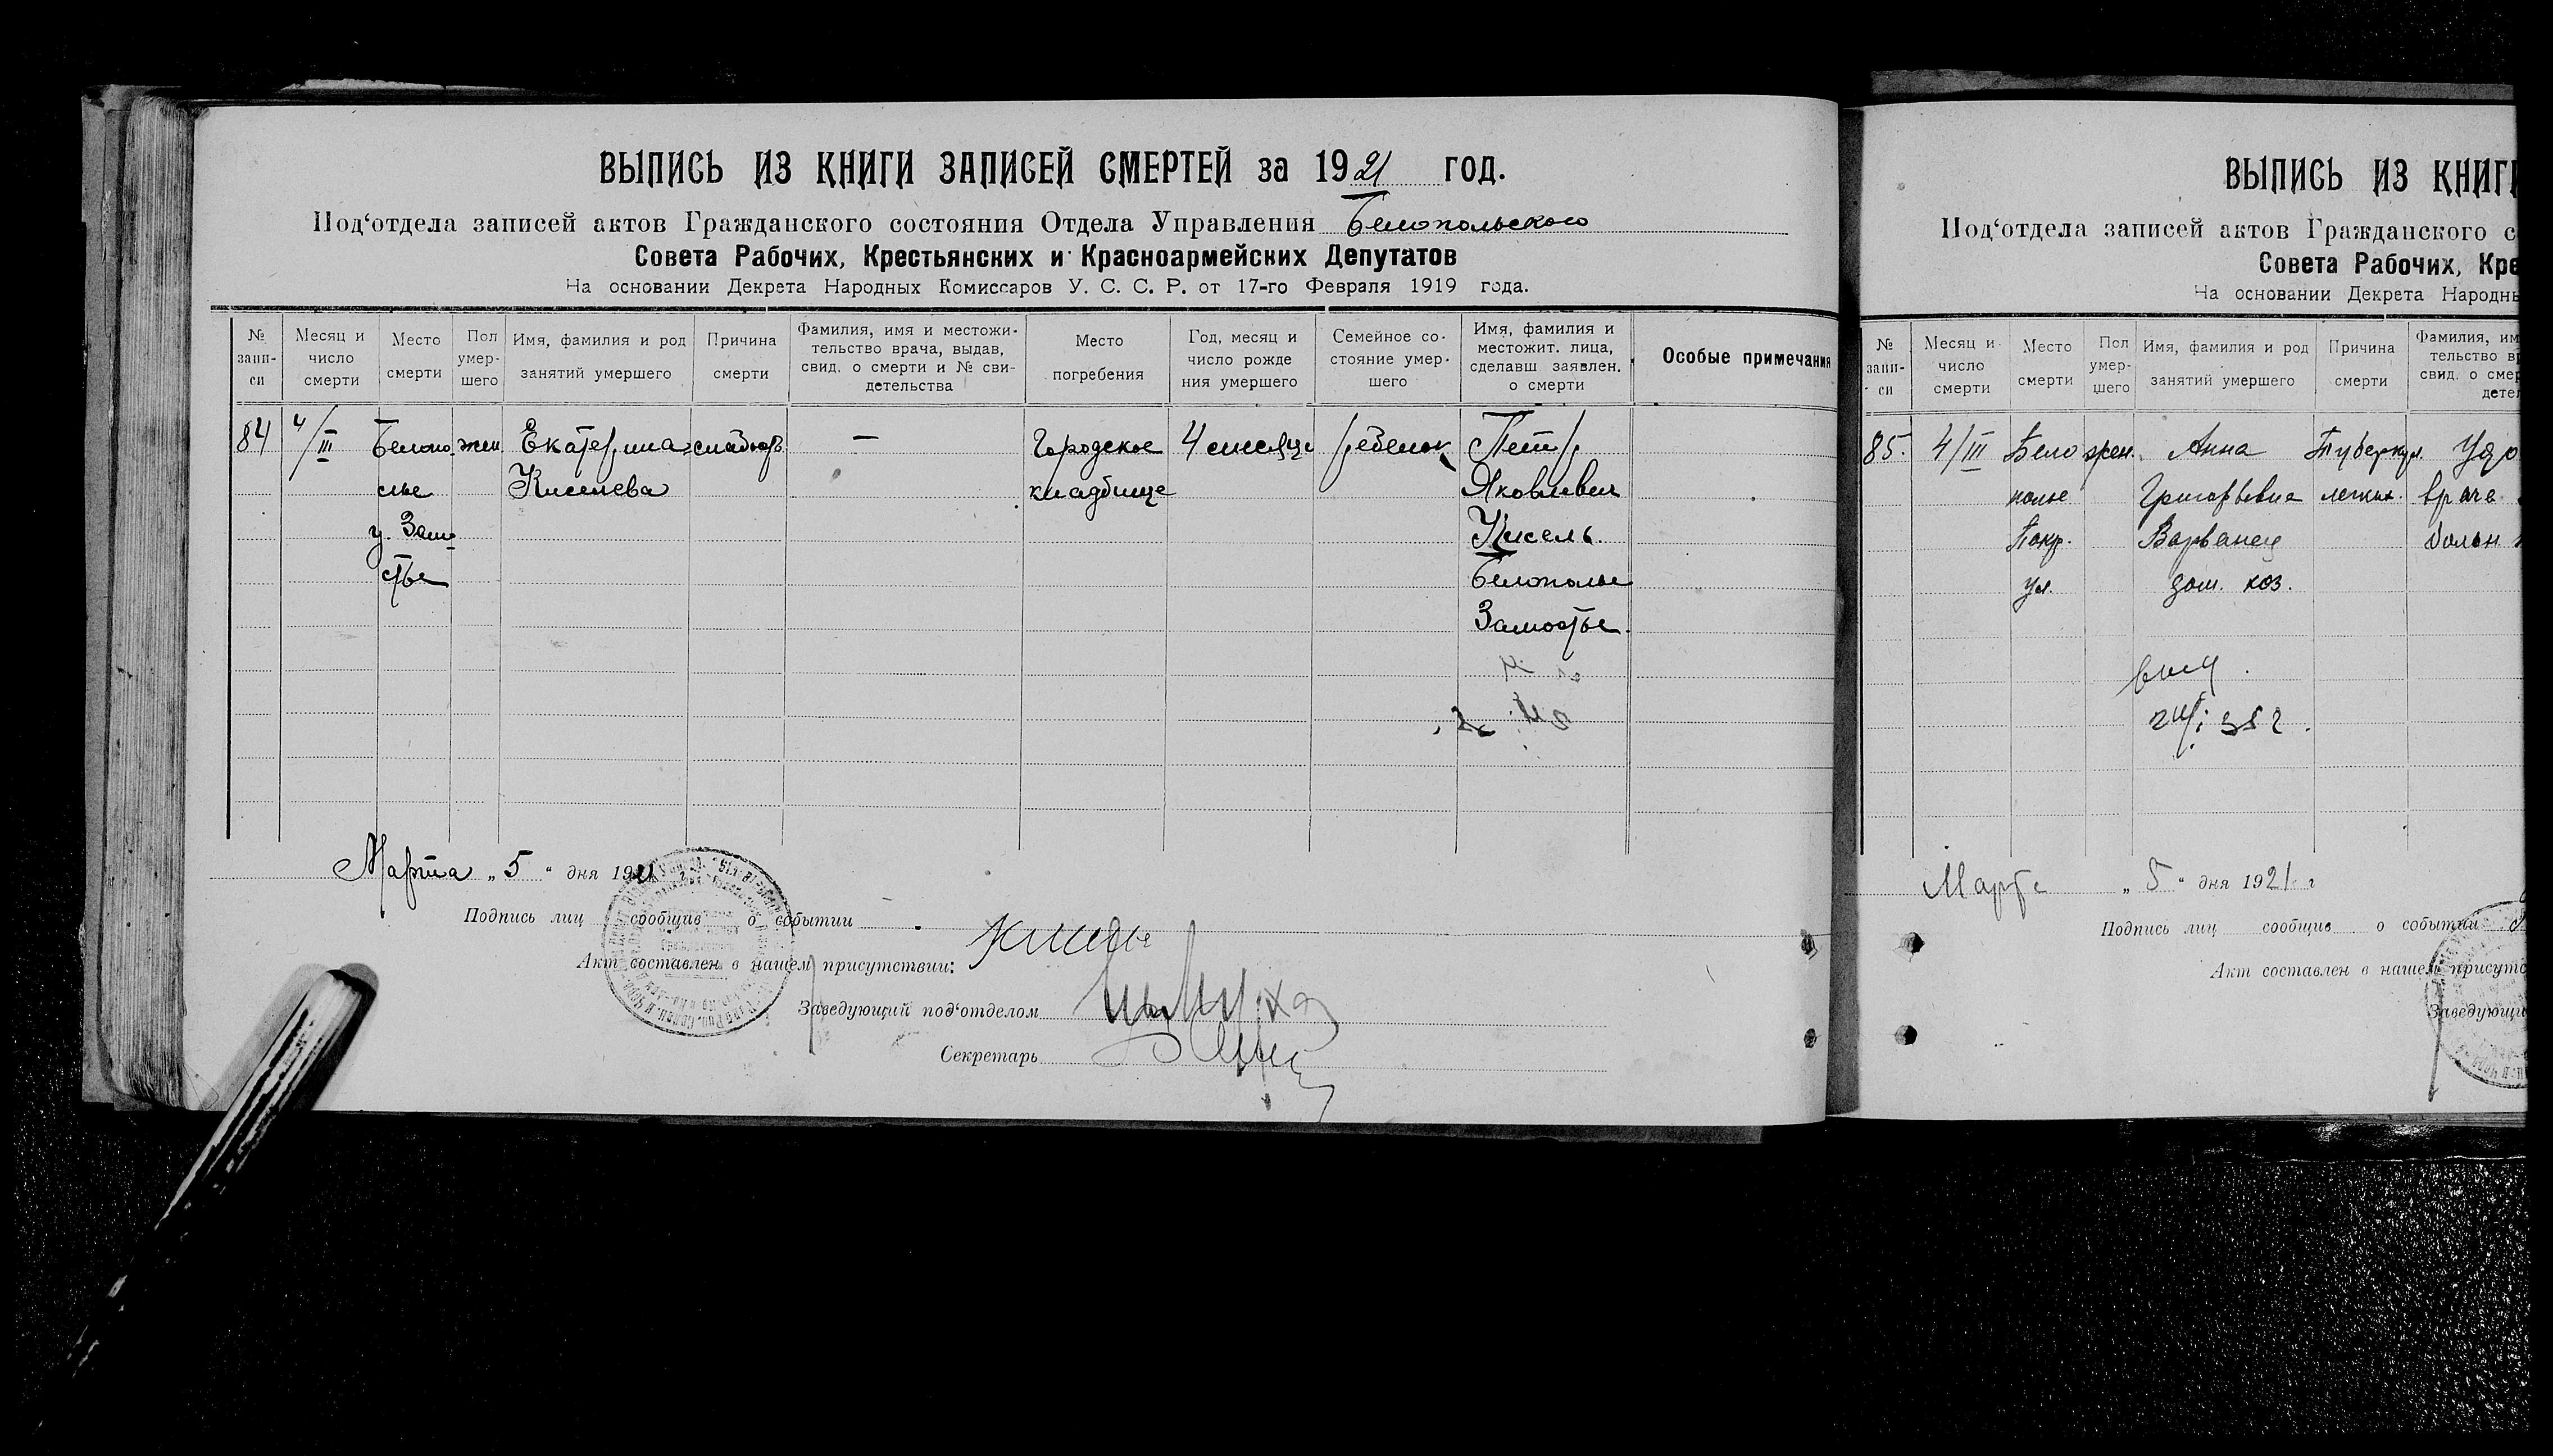 ВЫПИСЬ ИЗ КНИГИ ЗАПИСЕЙ СМЕРТЕЙ за 1921 год.
Под‘отдела записей актов Гражданского состояния Отдела Управления Белопольского
Совета Рабочих, Крестьянских и Красноармейских Депутатов
На основании Декрета Народных Комиссаров У. С. С. Р. от 17-го Февраля 1919 года.
№ запи- си
Месяц и число смерти
Место смерти
Пол умер- шего
Имя, фамилия и род занятий умершего
Причина смерти
Фамилия, имя и местожи- тельство врача, выдав, свид. о смерти и № сви- детельства
Место погребения
Год, месяц и число рожде ния умершего
Семейное со- стояние умер- шего
Имя, фамилия и местожит. лица, сделавш заявлен. о смерти
Особые примечания
84 4/III Белопо жен Екатерина слабость — Городское 4 месяца ребенок Петр
лье Киселева кладбище Яковлевич
у. Замо Кисель.
стье Белополье
Замостье.
Марта „5“ дня 1921
Подпись лиц сообщив о событии
Акт составлен в нашем присутствии:
Заведующий под‘отделом
Секретарь
ВЫПИСЬ ИЗ КНИГИ
Под‘отдела записей актов Гражданского с
Совета Рабочих, Кре
На основании Декрета Народн
№ запи- си
Месяц и число смерти
Место смерти
Пол умер- шего
Имя, фамилия и род занятий умершего
Причина смерти
Фамилия, им тельство вр свид. о смер дете
85. 4/III Бело жен. Анна Туберкул. Удо
полье Григорьевна легких. врача
Покр. Варванец больн
ул. дом. хоз.
Марта „5“ дня 1921 г
Подпись лиц сообщив о событии
Акт составлен в нашем присутс
Заведующи